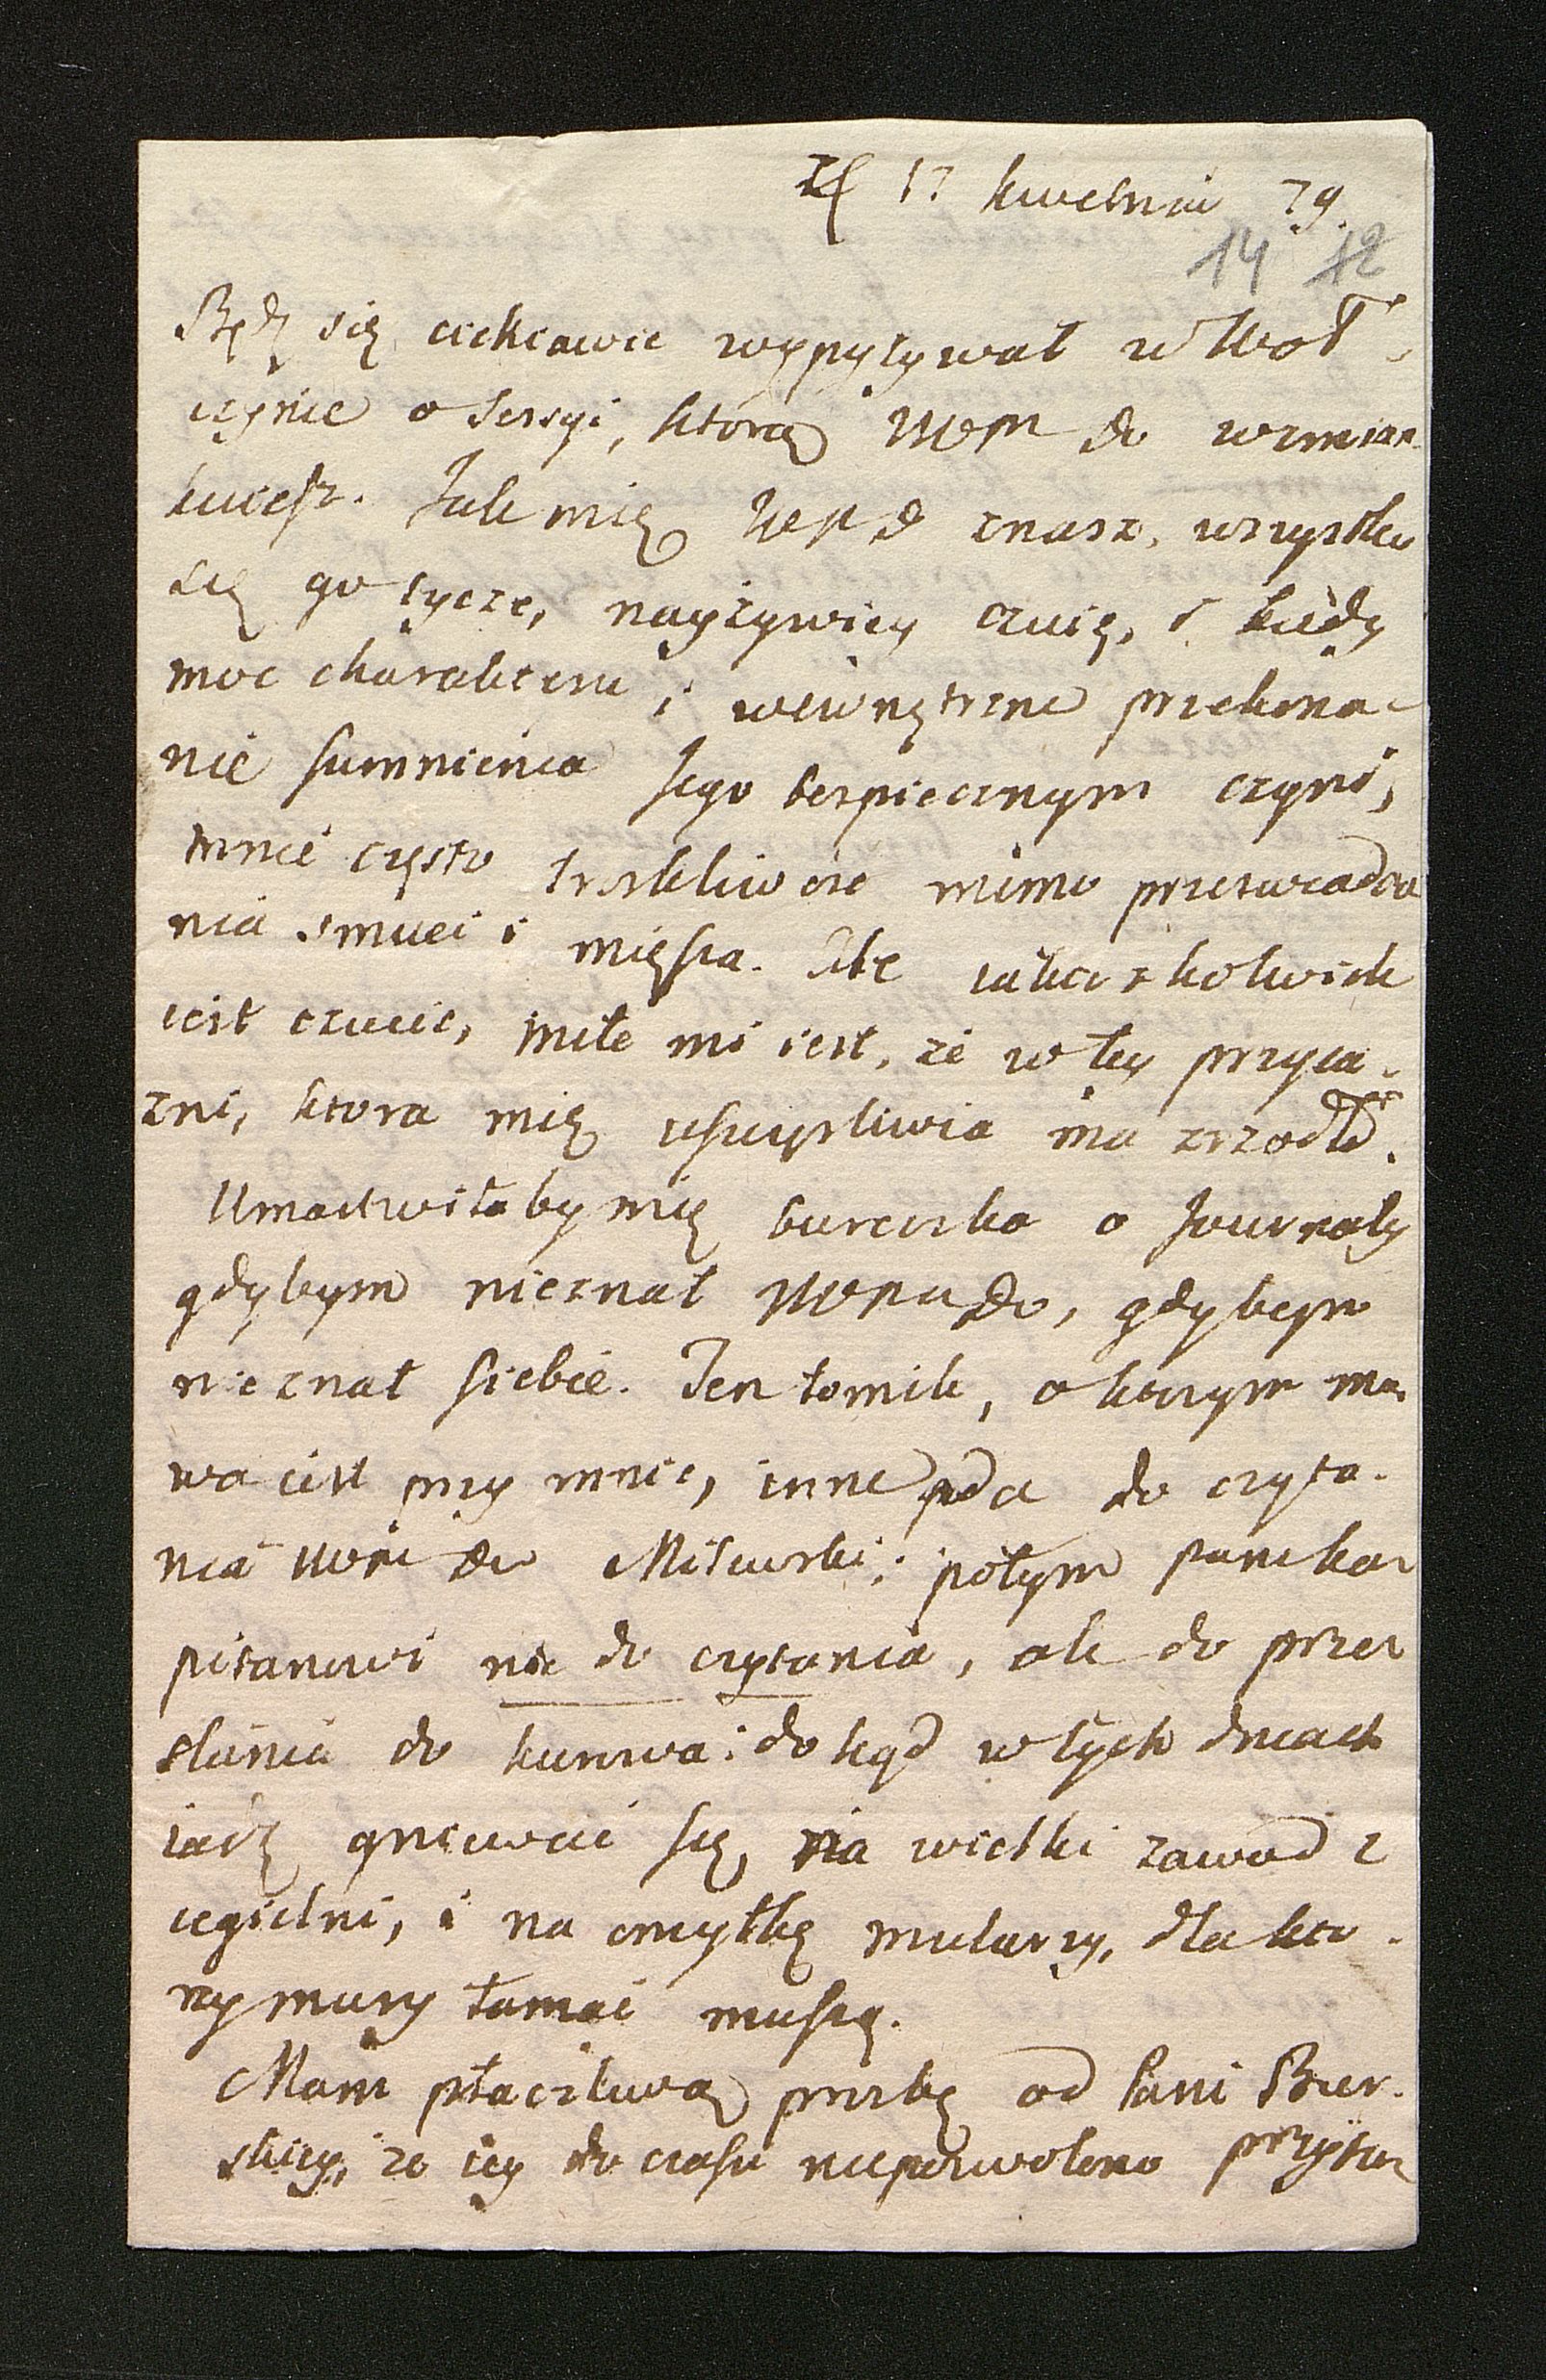 17 kwetnia 79.
14 12
Będę się ciekawie wypytywał w Woł-
czynie o sessyi, którą WPM Do wzmian-
kuiesz. Jak mię WPM D znasz, wszystko
się go tycze, nayżywiey czuię, i kiedy
moc charakteru i wewnętrzne przekona-
nie sumnienia Jego bespiecznym czyni,
mnie często troskliwość mimo przeswiadcze
nia smuci i mięsza. Ale iakieżkolwiek
iest czucie, miłe mi iest, że w tey przyia-
zni, ktora mię uszczęsliwia ma zrzodło.
Umartwiłaby mię burczka o Journały
gdybym nieznał WPMu Do, gdybym
nieznał siebie. Ten tomik, o ktorym mo-
wa iest przy mnie, inne oda do czyta-
nia Milewski; potym panu ka-
pitanowi nie do czytania, ale do prze-
słania do kunowa: dokąd w tych dniach
iadę gniewać się, na wielki zawod z
cegielni, i na omyłkę mularzy, dla kto-
rey mury łamać muszą.
Mam płaczliwą prozbę od Pani Bier-
skiey, że iey do czasu niepozwolono